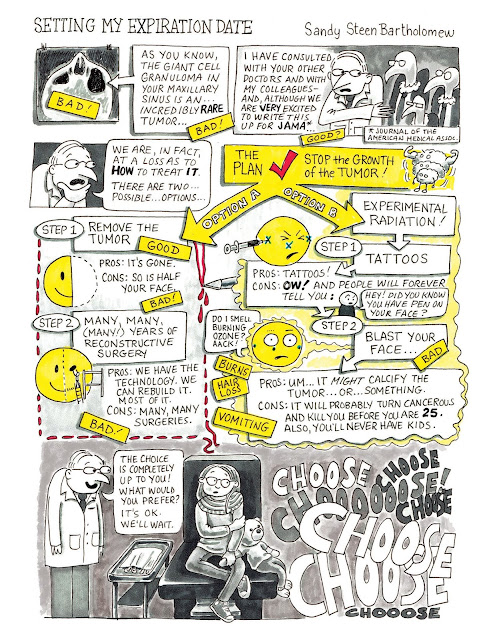 SETTING MY EXPIRATION DATE
Sandy Steen Bartholomew
BAD!
AS YOU KNOW,
THE GIANT CELL
GRANULOMA IN
YOUR MAXILLARY
SINUS IS AN...
INCREDIBLY RARE
TUMOR...
BAD!
I HAVE CONSULTED
WITH YOUR OTHER
DOCTORS AND WITH
MY COLLEAGUES-
AND, ALTHOUGH WE
ARE VERY EXCITED
TO WRITE THIS
UP FOR JAMA*...
GOOD?
* JOURNAL OF THE
AMERICAN MEDICAL ASSOC.
WE ARE, IN FACT,
AT A LOSS AS TO
HOW TO TREAT IT.
THERE ARE TWO...
POSSIBLE...OPTIONS...
THE
PLAN
STOP the GROWTH
of the TUMOR!
OPTION A
OPTION B
STEP 1
REMOVE THE
TUMOR
GOOD
PROS: IT'S GONE.
CONS: SO IS HALF
YOUR FACE.
BAD!
STEP 2
MANY, MANY,
(MANY!) YEARS OF
RECONSTRUCTIVE
SURGERY
PROS: WE HAVE THE
TECHNOLOGY. WE CAN
REBUILD IT.
MOST OF IT.
CONS: MANY, MANY
SURGERIES.
BAD!
EXPERIMENTAL
RADIATION!
STEP 1
TATTOOS
PROS: TATTOOS!
CONS: OW! AND PEOPLE WILL FOREVER
TELL YOU:
HEY! DID YOU KNOW
YOU HAVE PEN ON
YOUR FACE?
STEP 2
DO I SMELL
BURNING
OZONE?
AACK!
BLAST YOUR
FACE...
BAD
BURNS
HAIR
LOSS
VOMITING
PROS: UM... IT MIGHT CALCIFY THE
TUMOR...OR...SOMETHING.
CONS: IT WILL PROBABLY TURN CANCEROUS
AND KILL YOU BEFORE YOU ARE 25.
ALSO, YOU'LL NEVER HAVE KIDS.
THE CHOICE
IS COMPLETELY
UP TO YOU!
WHAT WOULD
YOU PREFER?
IT'S OK.
WE'LL WAIT.
CHOOSE
CHOOSE
CHOOOOOOSE!
CHOOSE
CHOOSE
CHOOSE
CHOOOSE